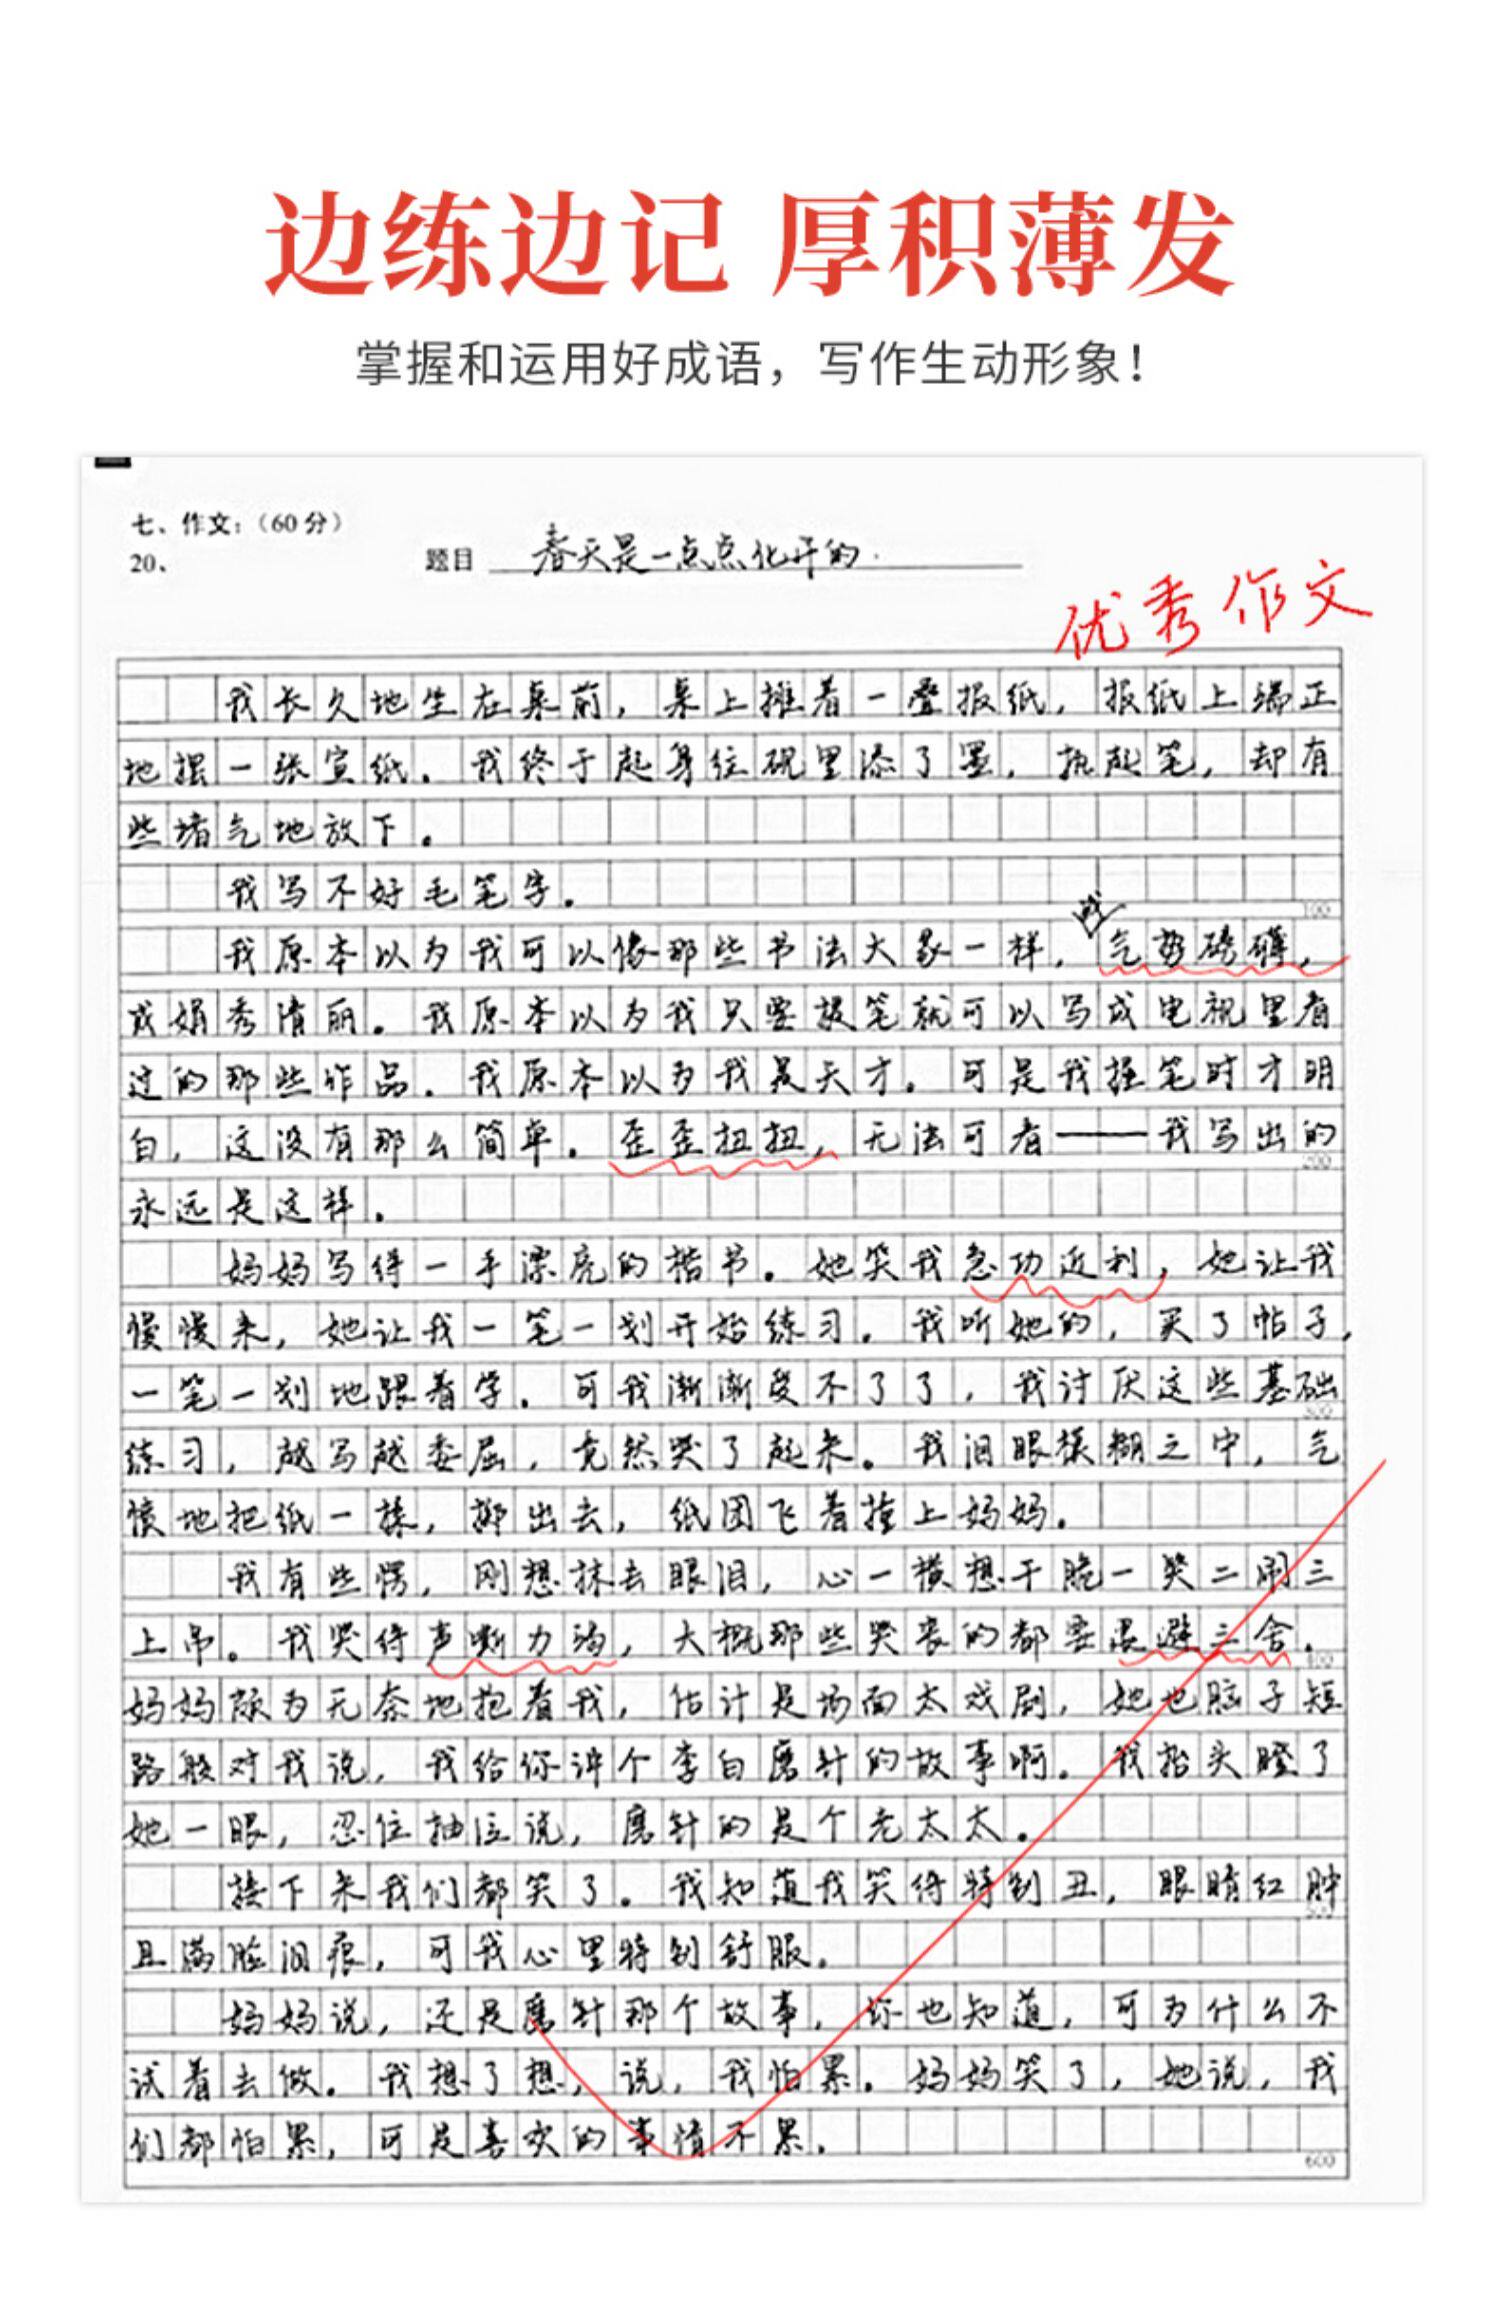 边练边记 厚积薄发
掌握和运用好成语，写作生动形象！
七、作文：（60分）
20、
题目 春天是一点点化开的.
优秀作文
我长久地坐在桌前，桌上摊着一叠报纸，报纸上端正
地摆一张宣纸。我终于起身往砚里添了墨，执起笔，却有
些堵气地放下。
我写不好毛笔字。
100
我原本以为我可以像那些书法大家一样，或气势磅礴，
或娟秀清丽。我原本以为我只要提笔就可以写成电视里看
过的那些作品。我原本以为我是天才。可是我握笔时才明
白，这没有那么简单。歪歪扭扭，无法可看——我写出的
200
永远是这样。
妈妈写得一手漂亮的楷书。她笑我急功近利，她让我
慢慢来，她让我一笔一划开始练习。我听她的，买了帖子，
一笔一划地跟着学。可我渐渐受不了了，我讨厌这些基础
300
练习，越写越委屈，竟然哭了起来。我泪眼模糊之中，气
愤地把纸一揉，掷出去，纸团飞着撞上妈妈。
我有些愣，刚想抹去眼泪，心一横想干脆一哭二闹三
上吊。我哭得声嘶力竭，大概那些哭丧的都要退避三舍。
400
妈妈颇为无奈地抱着我，估计是场面太戏剧，她也脑子短
路般对我说，我给你讲个李白磨针的故事啊。我抬头瞪了
她一眼，忍住抽泣说，磨针的是个老太太。
接下来我们都笑了。我知道我笑得特别丑，眼睛红肿
500
且满脸泪痕，可我心里特别舒服。
妈妈说，还是磨针那个故事，你也知道，可为什么不
试着去做。我想了想，说，我怕累。妈妈笑了，她说，我
们都怕累，可是喜欢的事情不累。
600